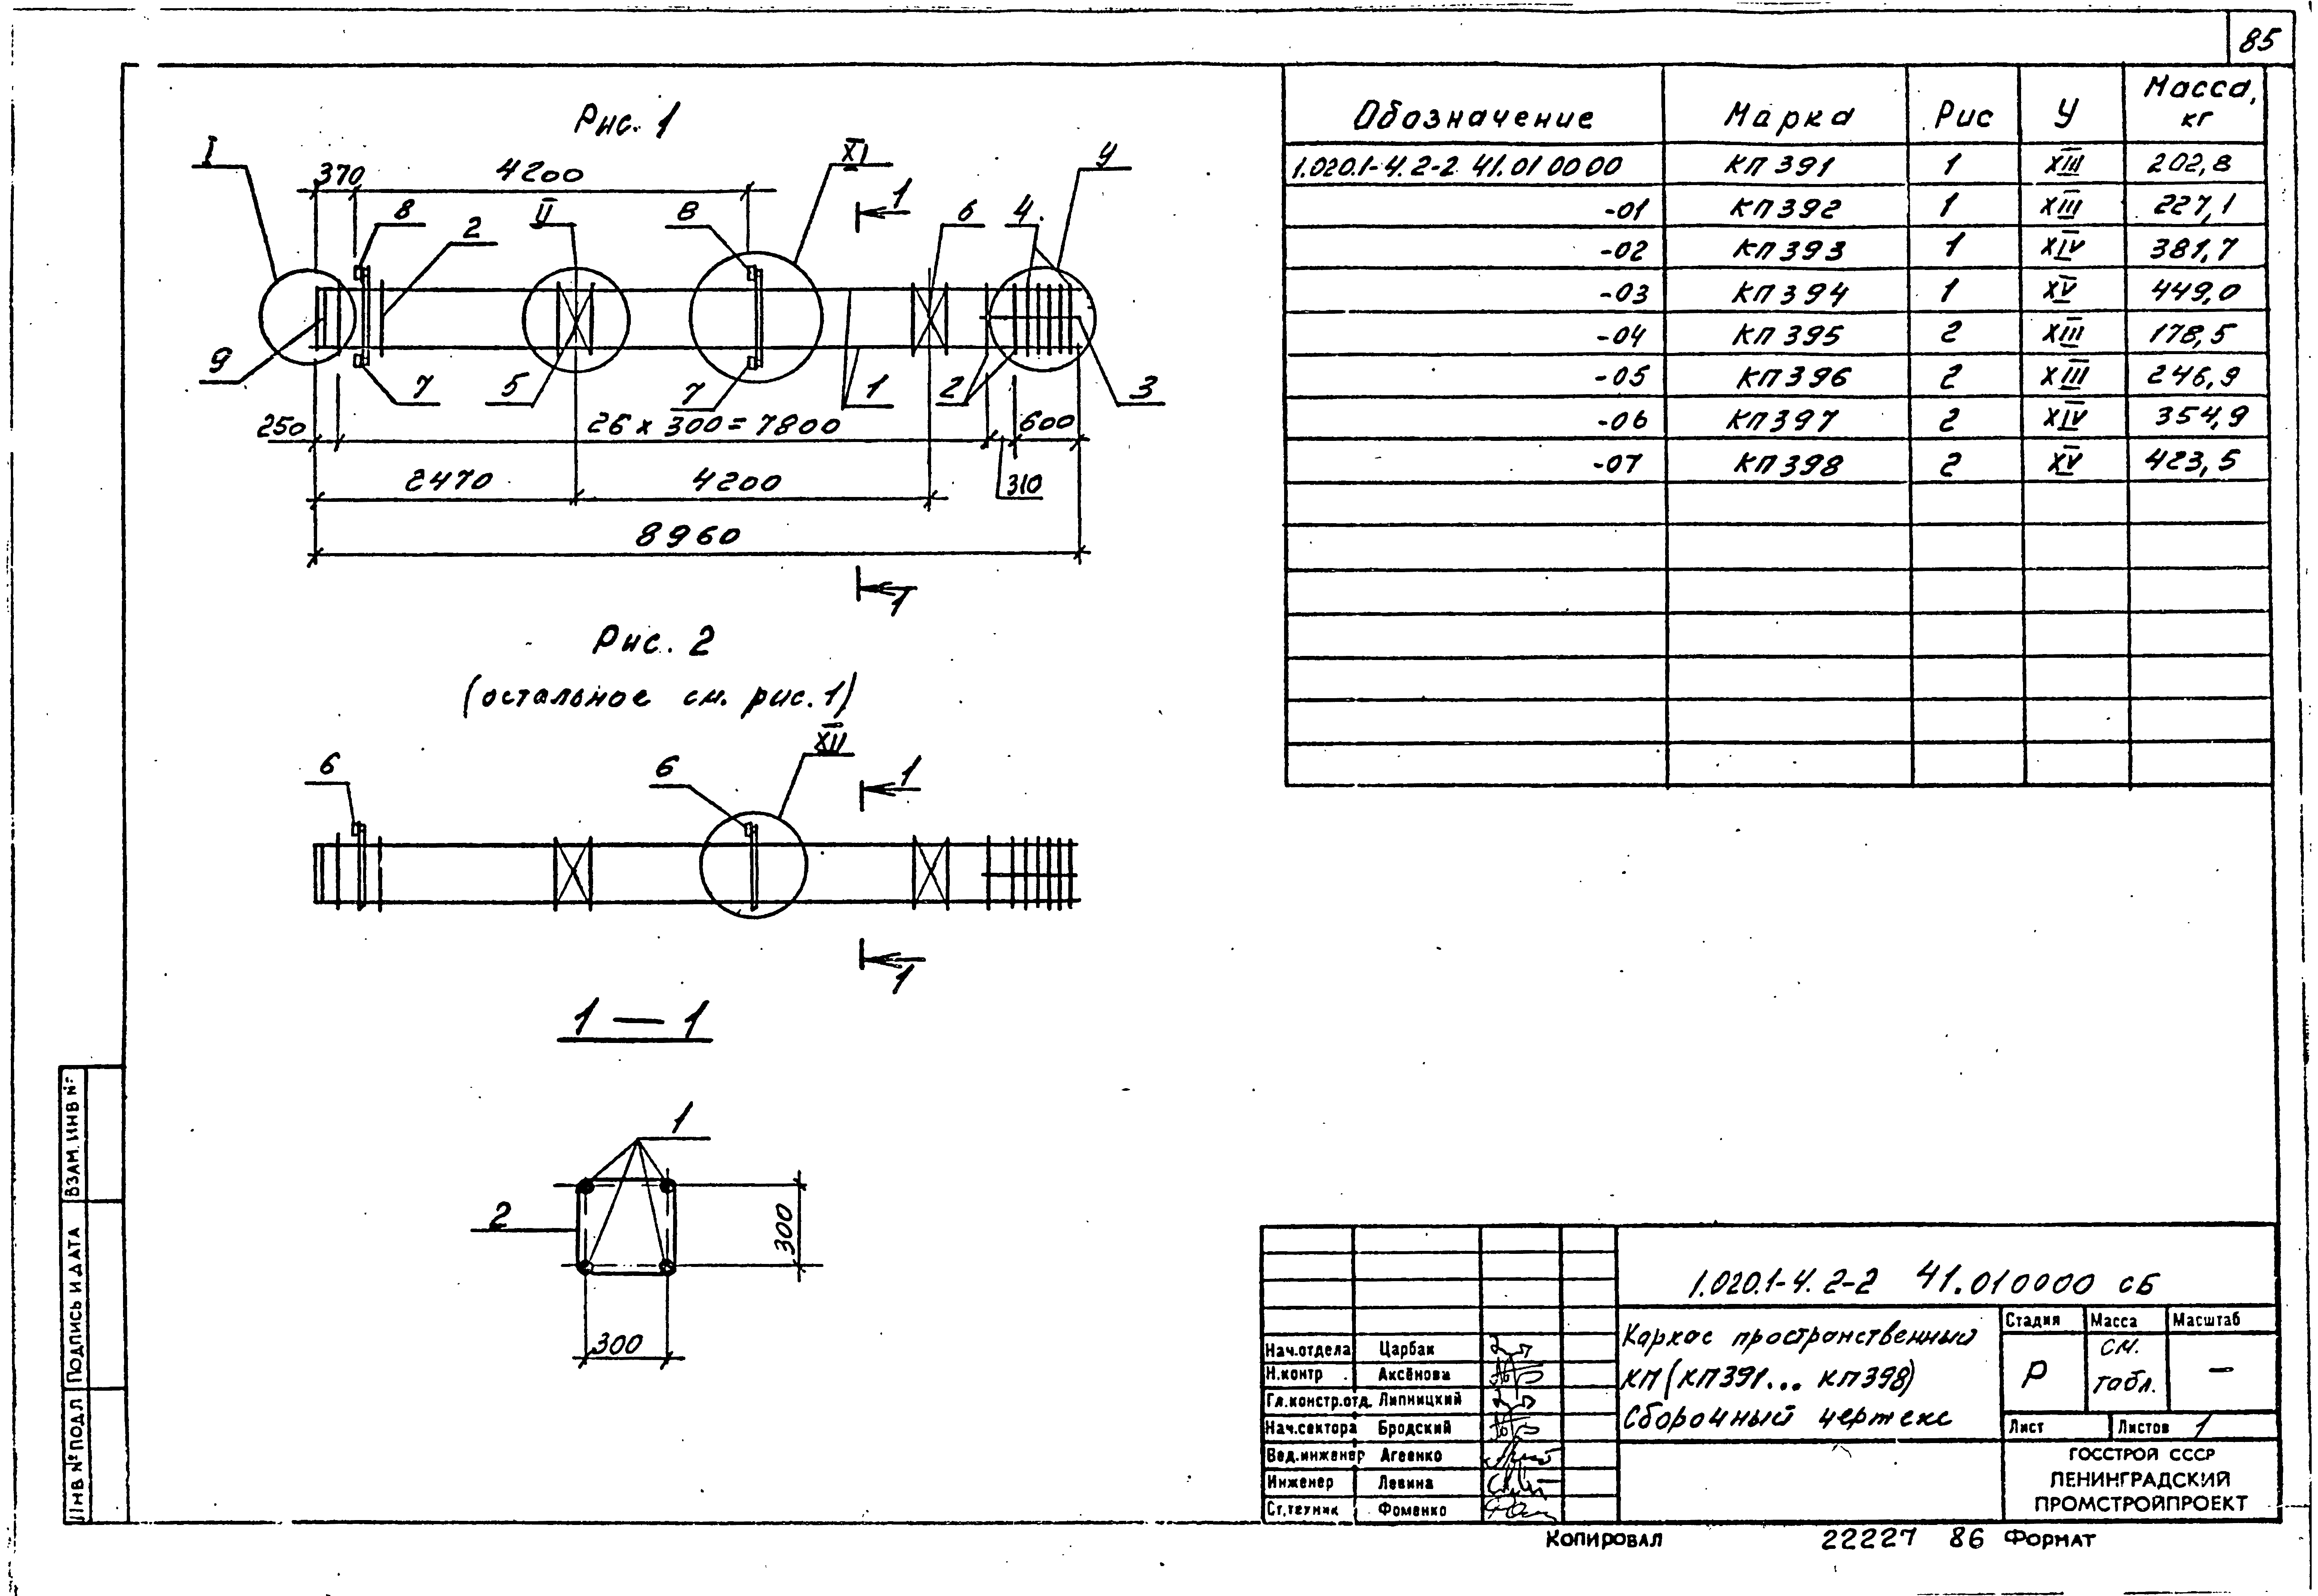 85
Рис. 1
I
370
4200
XI
У
1
8
2
II
8
6
4
9
7
5
7
1
2
3
250
26 х 300 = 7800
600
2470
4200
310
8960
1
Рис. 2
(остальное см. рис. 1)
XII
6
6
1
1
1 — 1
1
2
300
300
Обозначение Марка Рис У Масса, кг
1.020.1-4. 2-2 41.01 00 00 КП 391 1 XIII 202,8
-01 КП 392 1 XIII 227,1
-02 КП 393 1 XIV 381,7
-03 КП 394 1 XV 449,0
-04 КП 395 2 XIII 178,5
-05 КП 396 2 XIII 246,9
-06 КП 397 2 XIV 354,9
-07 КП 398 2 XV 423,5
1.020.1-4. 2-2 41.010000 СБ
Каркас пространственный
КП (КП391... КП398)
Сборочный чертеж
Стадия Масса Масштаб
Р см. табл. —
Лист Листов 1
ГОССТРОЙ СССР
ЛЕНИНГРАДСКИЙ
ПРОМСТРОЙПРОЕКТ
Нач.отдела Царбак
Н.контр Аксёнова
Гл.констр.отд. Липницкий
Нач.сектора Бродский
Вед.инженер Агеенко
Инженер Левина
Ст.техник Фоменко
ВЗАМ. ИНВ №
Подпись и дата
Инв № подл
Копировал 22227 86 Формат